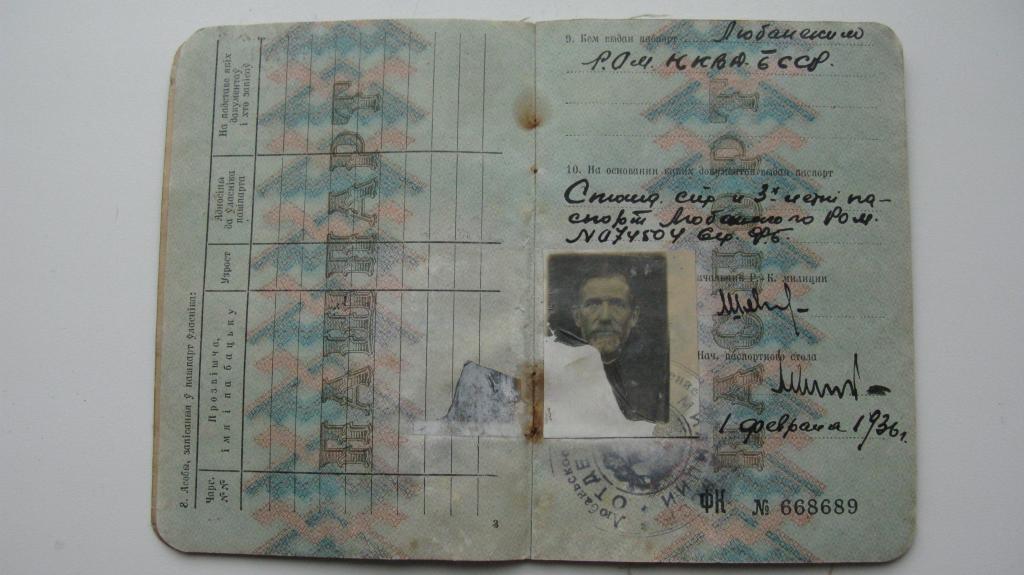 8. Асобы, запісаныя ў пашпарт ўласніка:
Чарг. №№
Прозвішча, імя і па бацьку
Узрост
Адносіна да ўласніка пашпарта
На падставе якіх дакументаў і хто запісаў
ПАШПАРТ
3
9. Кем выдан паспорт Любанским
Р.О.м. НКВД. БССР.
10. На основании каких документов выдан паспорт
спр и 3х летн па-
спорт Любанского РОМ.
№ 074504
Начальник Р.-К. милиции
Нач. паспортного стола
1 февраля 1936 г.
ПАСПОРТ
ФК № 668689